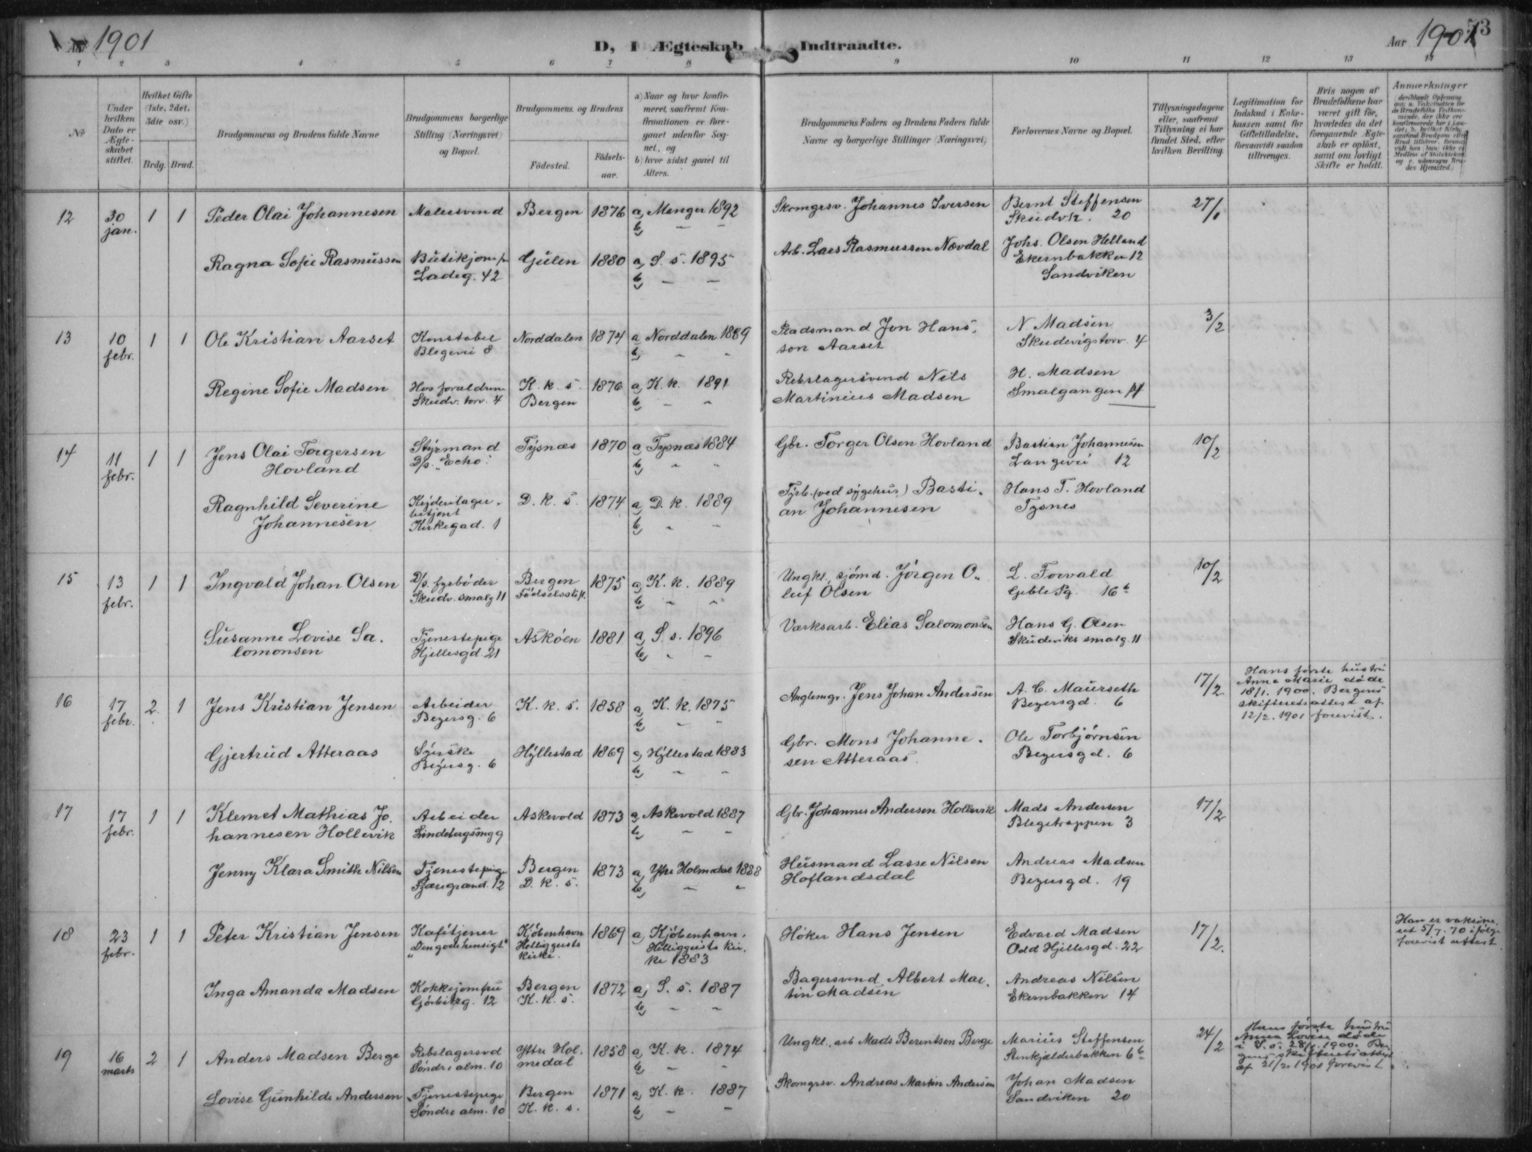 Aar 1901
D, I Ægteskab Indtraadte.
Aar 1901
53
1 2 3 4 5 6 7 8 9 10 11 12 13 14
No
Under hvilken Dato er Ægteskabet stiftet.
Hvilket Gifte (1ste, 2det, 3die osv.)
Brdg. Brud.
Brudgommens og Brudens fulde Navne
Brudgommens borgerlige Stilling (Næringsvei) og Bopæl.
Brudgommens og Brudens
Fødested.
Fødselsaar.
a) Naar og hvor konfirmeret, saafremt Konfirmationen er foregaaet udenfor Sognet, og
b) hvor sidst gaaet til Alters.
Brudgommens Faders og Brudens Faders fulde Navne og borgerlige Stillinger (Næringsvei)
Forlovernes Navne og Bopæl.
Tillysningsdagene eller, saafremt Tillysning ei har fundet Sted, efter hvilken Bevilling.
Legitimation for Indskud i Enkekassen samt for Giftetilladelse, forsaavidt saadan tiltrænges.
Hvis nogen af Brudefolkene har været gift før, hvorledes da det foregaaende Ægteskab er opløst, samt om lovligt Skifte er holdt.
Anmerkninger
12 30 jan. 1 1 Peder Olai Johannesen Malersvend Bergen 1876 a) Manger 1892 b) " " Skomgrsv. Johannes Iversen Bernt Steffensen Skudvk. 20 27/1
Ragna Sofie Rasmussen Butikjomfr Ladeg. 42 Gulen 1880 a) S. s. 1895 b) " " Arb. Lars Rasmussen Nævdal Johs. Olsen Helland Ekernbakken 12 Sandviken
13 10 febr. 1 1 Ole Kristian Aarset Konstabel Blegevei 8 Norddalen 1874 a) Norddalen 1889 b) " " Pladsmand Jon Hansson Aarset N Madsen Skudevigstorv 4 3/2
Regine Sofie Madsen Hos foraldrene Skudv. torv. 4 K. k. s. Bergen 1876 a) K. k. 1891 b) " " Rebslagersvend Nils Martinius Madsen H. Madsen Smalgangen 14
14 11 febr. 1 1 Jens Olai Torgersen Hovland Styrmand D/s. "Echo". Tysnæs 1870 a) Tysnæs 1884 b) " " Gbr. Torger Olsen Hovland Bastian Johannesen Langevei 12 10/2
Ragnhild Severine Johannesen betjent Kirkegad. 1 D. k. s. 1874 a) D. k. 1889 b) " " Fyrb. (ved sygehus) Bastian Johannesen Hans T. Hovland Tysnes
15 13 febr. 1 1 Ingvald Johan Olsen D/s. fyrbøder Skudv. smalg 11 Bergen Fødselsstif. 1875 a) K. k. 1889 b) " " Ungkl. sjømd. Jørgen Oleif Olsen L. Torvald Geble Pg. 16 b 10/2
Susanne Lovise Salomonsen Tjenestepige Hjellesgd 21 Askøen 1881 a) S. s. 1896 b) " " Værksarb. Elias Salomonsen Hans G. Olsen Skudeviks smalg. 11
16 17 febr. 2 1 Jens Kristian Jensen Arbeider Beyersg. 6 K. k. s. 1858 a) K. k. 1875 b) " " Anglemgr. Jens Johan Andersen A. C. Maurseth Beyersgd. 6 17/2 Hans første hustru Anne Marie døde 18/1. 1900. Bergens skifteretsattest af 12/2. 1901 forevist.
Gjertrud Atteraas Syerske Beyersg. 6 Hyllestad 1869 a) Hyllestad 1883 b) " " Gbr. Mons Johannesen Atteraas Ole Torbjørnsen Beyersgd. 6
17 17 febr. 1 1 Klemet Mathias Johannesen Hollevik Arbeider Askevold 1873 a) Askevold 1887 b) " " Gbr. Johannes Andersen Hollevik Mads Andersen Blegetrappen 3 17/2
Jenny Klara Smith Nilsen Tjenestepige 12 Bergen D. k. s. 1873 a) Ytre Holmedal 1888 b) " " Husmand Lasse Nilsen Hoflandsdal Andreas Madsen Beyersgd. 19
18 23 febr. 1 1 Peter Kristian Jensen Kafétjener "Den gode hensigt" Kjøbenhavn Helliggeists kirke. 1869 a) Kjøbenhavn. Helliggeists kirke 1883 Høker Hans Jensen Edvard Madsen Odd Hjellesgd. 22 17/2 Han er vaksineret 5/7. 70 ifølge forevist attest.
Inga Amanda Madsen Kokkejomfru Gørbitzg. 12 Bergen K. k. s. 1872 a) S. s. 1887 b) " " Bagersvend Albert Martin Madsen Andreas Nilsen Ekernbakken 14
19 16 marts 2 1 Anders Madsen Berge Rebslagersvd Søndre alm. 10 Ytre Holmedal 1858 a) K. k. 1874 b) " " Ungkl. arb Mads Berentsen Berge Marius Steffensen Stenkjelderbakken 6 b 24/2 Hans første hustru Anna Lovise døde i S. s. 1900. Bergens skifteretsattest af 21/2 1901 forevist.
Lovise Gunhilda Andersen Tjenestepige Søndre alm. 10 Bergen K. k. s. 1871 a) K. k. 1887 b) " " Skomgrsv. Andreas Martin Andersen Johan Madsen Sandviken 20